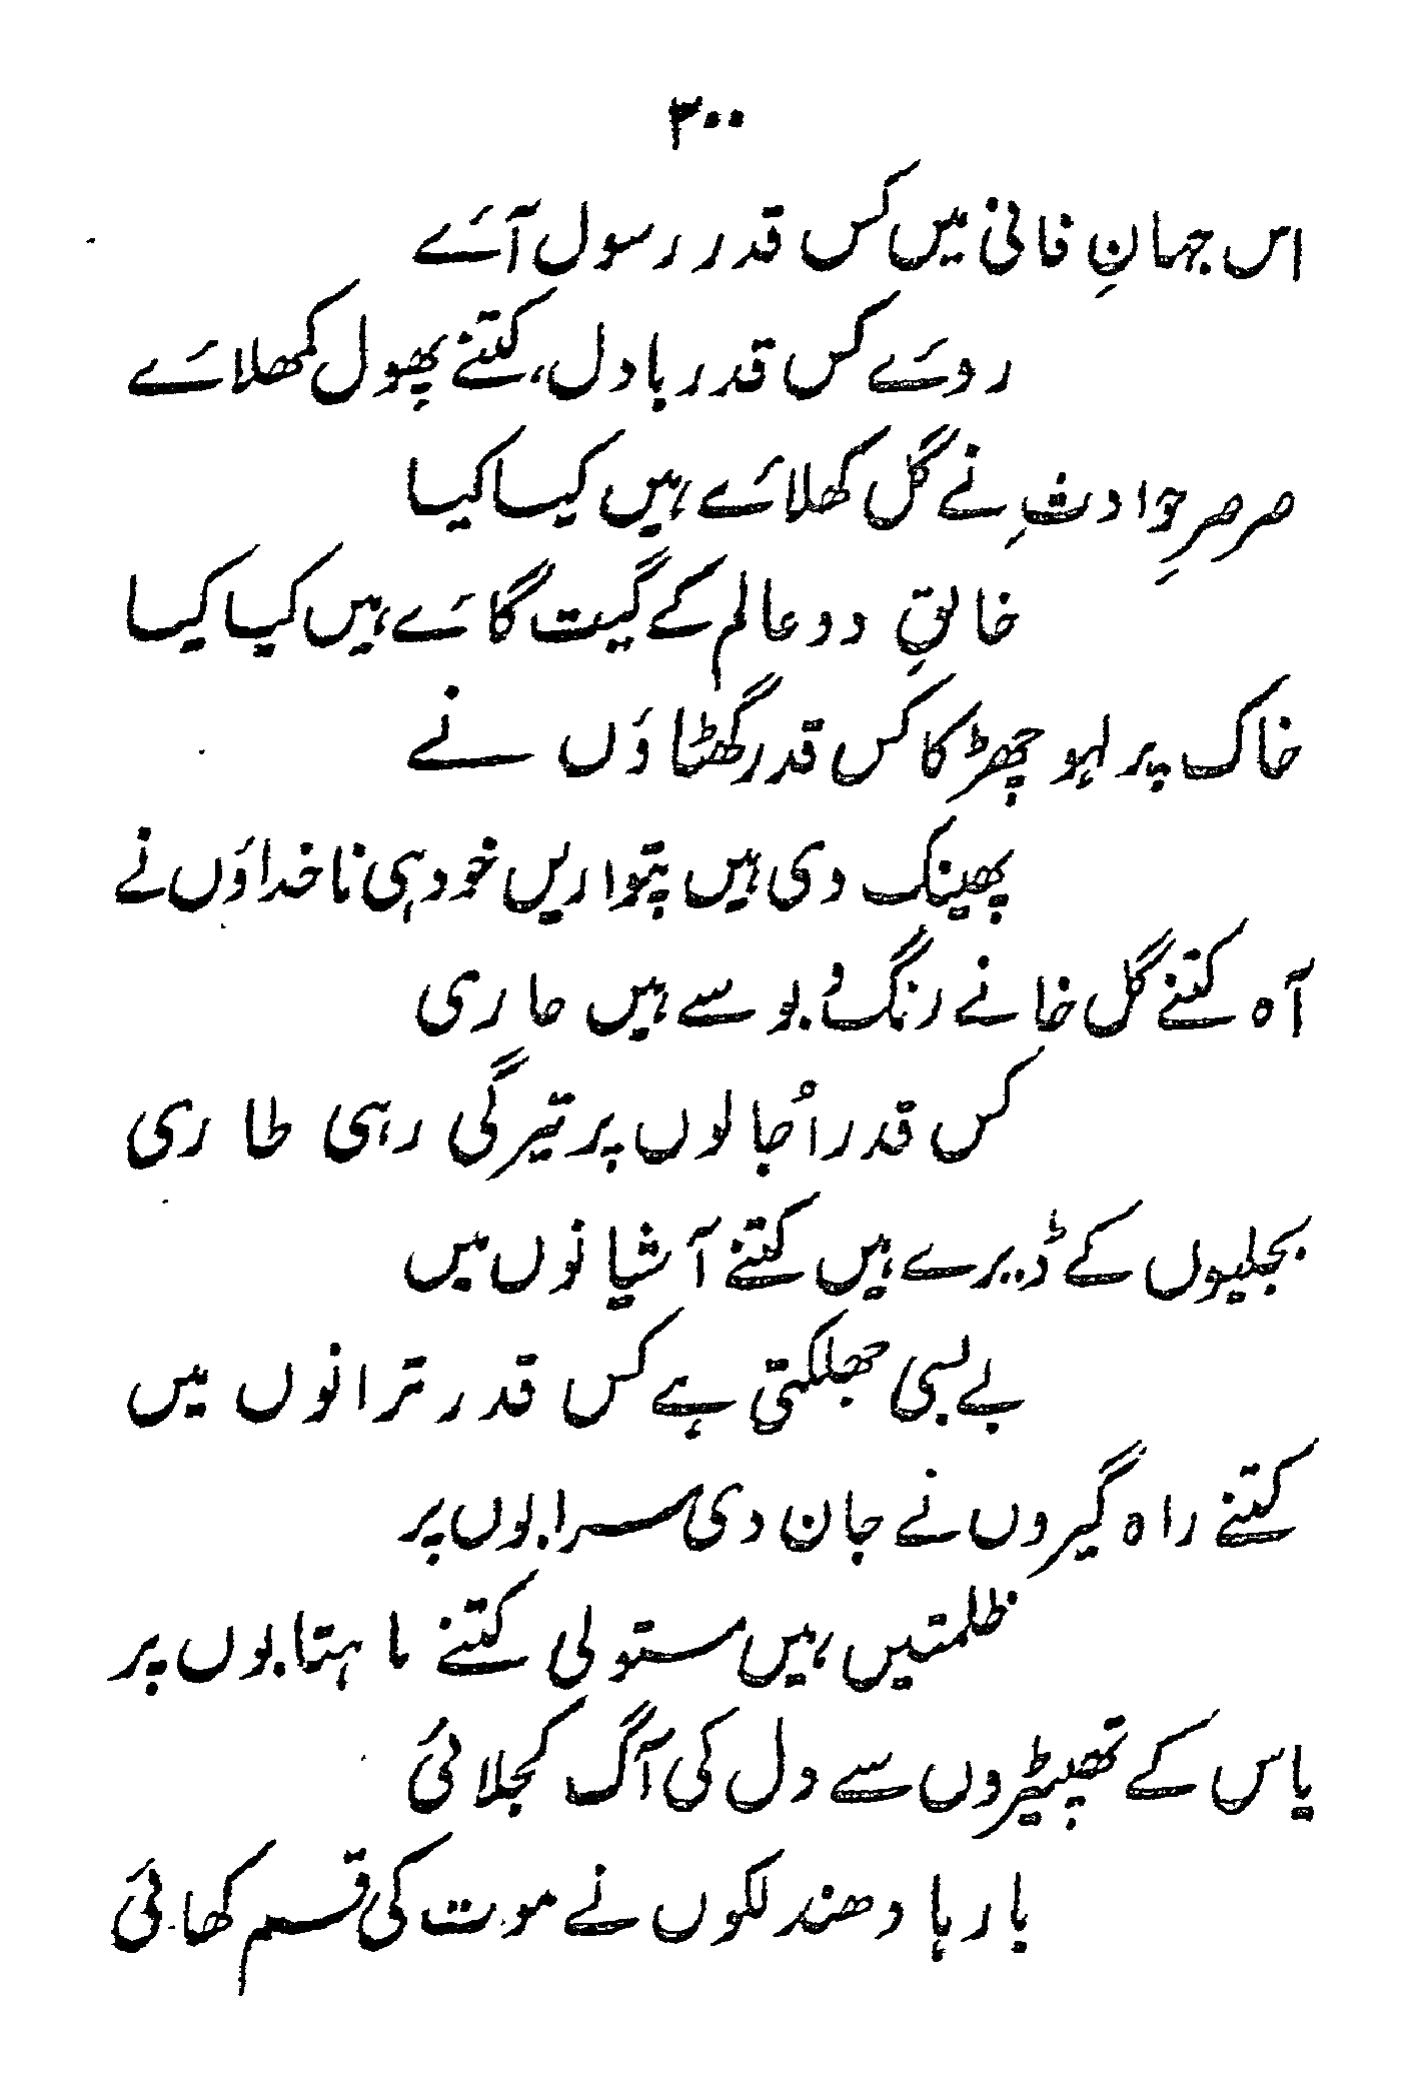 ۳۰۰
اس جہانِ فانی میں کس قدر رسول آئے
روئے کس قدر بادل، کتنے پھول کمھلائے
صرصرِ حوادثِ نے گل کھلائے ہیں کیسا کیسا
خالقِ دو عالم کے گیت گائے ہیں کیا کیسا
خاک پر لہو چھڑکا کس قدر گھٹاؤں نے
پھینک دی ہیں پتواریں خود ہی ناخداؤں نے
آہ کتنے گل خانے رنگ و بو سے ہیں عاری
کس قدر اُجالوں پر تیرگی رہی طاری
بجلیوں کے ڈیرے ہیں کتنے آشیانوں میں
بے بسی جھلکتی ہے کس قدر ترانوں میں
کتنے راہ گیروں نے جان دی سرابوں پر
ظلمتیں ہیں مستولی کتنے ماہتابوں پر
یاس کے تھپیڑوں سے دل کی آگ کجلائی
بارہا دھندلکوں نے موت کی قسم کھائی